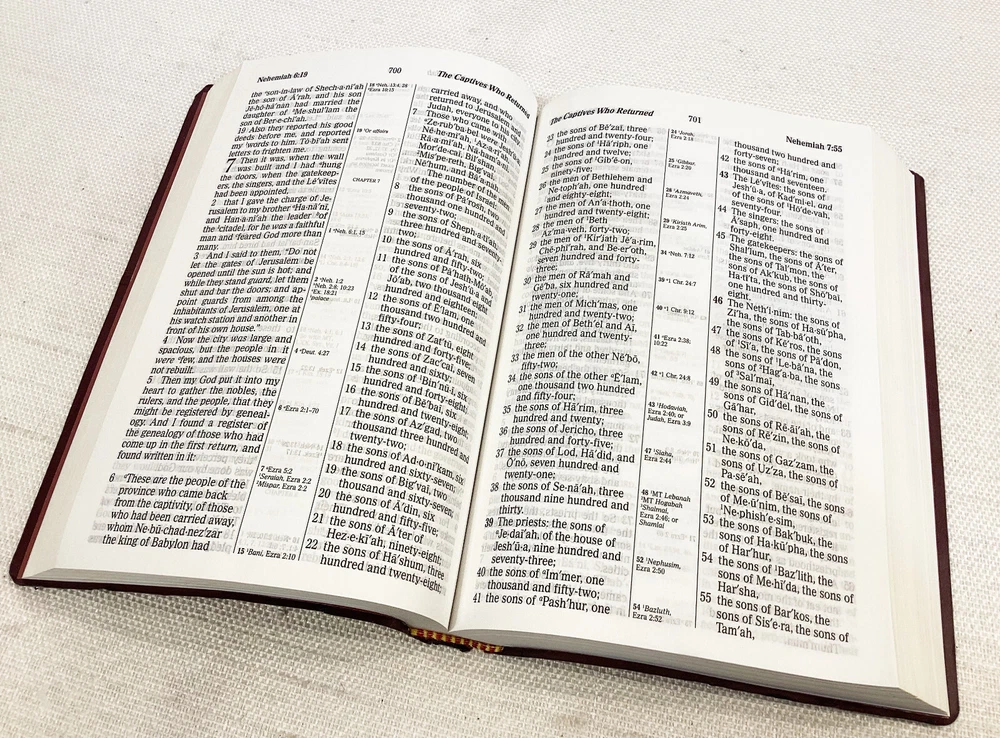 Nehemiah 6:19
700
The Captives Who Returned
the ᵃson-in-law of Shech-a-nī´ah
the son of Ā´rah, and his son
Jē-hō-hā´nan had married the
daughter of ᵃMe-shul´lam the
son of Ber-e-chī´ah.
19 Also they reported his good
deeds before me, and reported
my ¹words to him. Tō-bī´ah sent
letters to frighten me.
7 Then it was, when the wall
was built and I had ᵃhung
the doors, when the gatekeep-
ers, the singers, and the Lē´vites
had been appointed,
2 that I gave the charge of Je-
rusalem to my brother ᵃHa-nā´nī,
and Han-a-nī´ah the leader ᵇof
the ¹citadel, for he was a faithful
man and ᶜfeared God more than
many.
3 And I said to them, “Do not
let the gates of Jerusalem be
opened until the sun is hot; and
while they stand guard, let them
shut and bar the doors; and ap-
point guards from among the
inhabitants of Jerusalem, one at
his watch station and another in
front of his own house.”
4 Now the city was large and
spacious, but the people in it
were ᵃfew, and the houses were
not rebuilt.
5 Then my God put it into my
heart to gather the nobles, the
rulers, and the people, that they
might be registered by geneal-
ogy. And I found a register of
the genealogy of those who had
come up in the first return, and
found written in it:
6 ᵃThese are the people of the
province who came back
from the captivity, of those
who had been carried away,
whom Ne-bū-chad-nez´zar
the king of Babylon had
18 ᵃNeh. 13:4, 28
ᵇEzra 10:15
19 ¹Or affairs
CHAPTER 7
1 ᵃNeh. 6:1, 15
2 ᵃNeh. 1:2
ᵇNeh. 2:8; 10:23
ᶜEx. 18:21
¹palace
4 ᵃDeut. 4:27
6 ᵃEzra 2:1–70
7 ᵃEzra 5:2
¹Seraiah, Ezra 2:2
²Mispar, Ezra 2:2
15 ¹Bani, Ezra 2:10
carried away, and who
returned to Jerusalem and
Judah, everyone to his city.
7 Those who came with
ᵃZe-rub´ba-bel were Jesh´ū-a,
Nē-he-mī´ah, ¹Az-a-rī´ah,
Rā-a-mī´ah, Nā-ham´a-nī,
Mor´de-cai, Bil´shan,
²Mis´pe-reth, Big´vai,
Nē´hum, and Bā´a-nah.
The number of the men
of the people of Israel:
8 the sons of Pā´rosh, two
thousand one hundred and
seventy-two;
9 the sons of Sheph-a-tī´ah,
three hundred and seventy-
two;
10 the sons of Ā´rah, six
hundred and fifty-two;
11 the sons of Pā´hath-Mō´ab,
of the sons of Jesh´ū-a and
Jō´ab, two thousand eight
hundred and eighteen;
12 the sons of Ē´lam, one
thousand two hundred and
fifty-four;
13 the sons of Zat´tū, eight
hundred and forty-five;
14 the sons of Zac´cai, seven
hundred and sixty;
15 the sons of ¹Bin´nū-i, six
hundred and forty-eight;
16 the sons of Bē´bai, six
hundred and twenty-eight;
17 the sons of Az´gad, two
thousand three hundred and
twenty-two;
18 the sons of Ad-o-nī´kam, six
hundred and sixty-seven;
19 the sons of Big´vai, two
thousand and sixty-seven;
20 the sons of Ā´din, six
hundred and fifty-five;
21 the sons of Ā´ter of
Hez-e-kī´ah, ninety-eight;
22 the sons of Hā´shum, three
hundred and twenty-eight;
The Captives Who Returned
701
Nehemiah 7:55
23 the sons of Bē´zai, three
hundred and twenty-four;
24 the sons of ¹Hā´riph, one
hundred and twelve;
25 the sons of ¹Gib´e-on,
ninety-five;
26 the men of Bethlehem and
Ne-toph´ah, one hundred
and eighty-eight;
27 the men of An´a-thoth, one
hundred and twenty-eight;
28 the men of ¹Beth
Az´ma-veth, forty-two;
29 the men of ¹Kir´jath Jē´a-rim,
Chē-phī´rah, and Be-er´oth,
seven hundred and forty-
three;
30 the men of Rā´mah and
Gē´ba, six hundred and
twenty-one;
31 the men of Mich´mas, one
hundred and twenty-two;
32 the men of Beth´el and Aī,
one hundred and twenty-
three;
33 the men of the other Nē´bō,
fifty-two;
34 the sons of the other ᵃĒ´lam,
one thousand two hundred
and fifty-four;
35 the sons of Hā´rim, three
hundred and twenty;
36 the sons of Jericho, three
hundred and forty-five;
37 the sons of Lod, Hā´did, and
Ō´nō, seven hundred and
twenty-one;
38 the sons of Se-nā´ah, three
thousand nine hundred and
thirty.
39 The priests: the sons of
ᵃJe-daī´ah, of the house of
Jesh´ū-a, nine hundred and
seventy-three;
40 the sons of ᵃIm´mer, one
thousand and fifty-two;
41 the sons of ᵃPash´hur, one
24 ¹Jorah,
Ezra 2:18
25 ¹Gibbar,
Ezra 2:20
28 ¹Azmaveth,
Ezra 2:24
29 ¹Kirjath Arim,
Ezra 2:25
34 ᵃNeh. 7:12
39 ᵃ1 Chr. 24:7
40 ᵃ1 Chr. 9:12
41 ᵃEzra 2:38;
10:22
42 ᵃ1 Chr. 24:8
43 ¹Hodaviah,
Ezra 2:40; or
Judah, Ezra 3:9
47 ¹Siaha,
Ezra 2:44
48 ¹MT Lebanah
²MT Hogabah
³Shalmai,
Ezra 2:46; or
Shamlai
52 ¹Nephusim,
Ezra 2:50
54 ¹Bazluth,
Ezra 2:52
thousand two hundred and
forty-seven;
42 the sons of ᵃHā´rim, one
thousand and seventeen.
43 The Lē´vites: the sons of
Jesh´ū-a, of Kad´mi-el, and
of the sons of ¹Hō´de-vah,
seventy-four.
44 The singers: the sons of
Ā´saph, one hundred and
forty-eight.
45 The gatekeepers: the sons of
Shal´lum, the sons of Ā´ter,
the sons of Tal´mon, the
sons of Ak´kub, the sons of
Ha-tī´ta, the sons of Shō´bai,
one hundred and thirty-
eight.
46 The Neth´i-nim: the sons of
Zī´ha, the sons of Ha-sū´pha,
the sons of Tab-bā´oth,
47 the sons of Kē´ros, the sons
of ¹Sī´a, the sons of Pā´don,
48 the sons of ¹Le-bā´na, the
sons of ²Hag´a-ba, the sons
of ³Sal´mai,
49 the sons of Hā´nan, the
sons of Gid´del, the sons of
Gā´har,
50 the sons of Rē-āi´ah, the
sons of Rē´zin, the sons of
Ne-kō´da,
51 the sons of Gaz´zam, the
sons of Uz´za, the sons of
Pa-sē´ah,
52 the sons of Bē´sai, the sons
of Me-ū´nim, the sons of
¹Ne-phish´e-sim,
53 the sons of Bak´buk, the
sons of Ha-kū´pha, the sons
of Har´hur,
54 the sons of ¹Baz´lith, the
sons of Me-hī´da, the sons of
Har´sha,
55 the sons of Bar´kos, the
sons of Sis´e-ra, the sons of
Tam´ah,